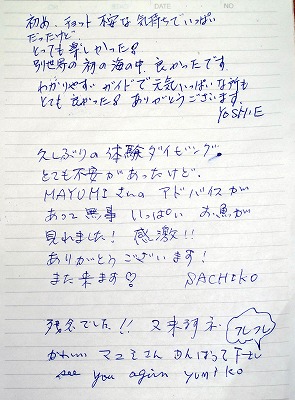 初め、チョット不安な気持ちでいっぱい
だったけど、
とっても楽しかった!
別世界の初の海の中、良かったです
わかりやすいガイドで元気いっぱいな所も
とても良かった! ありがとうございます。
YOSHIE
久しぶりの体験ダイビング。
とても不安があったけど、
MAYUMIさんのアドバイスが
あって無事いっぱいお魚が
見れました! 感激!!
ありがとうございます!
また来ます♡ SACHIKO
残念でした!! 又来るネ
フレフレ
かわいいマユミさんがんばって下さい
see you agian yumiko